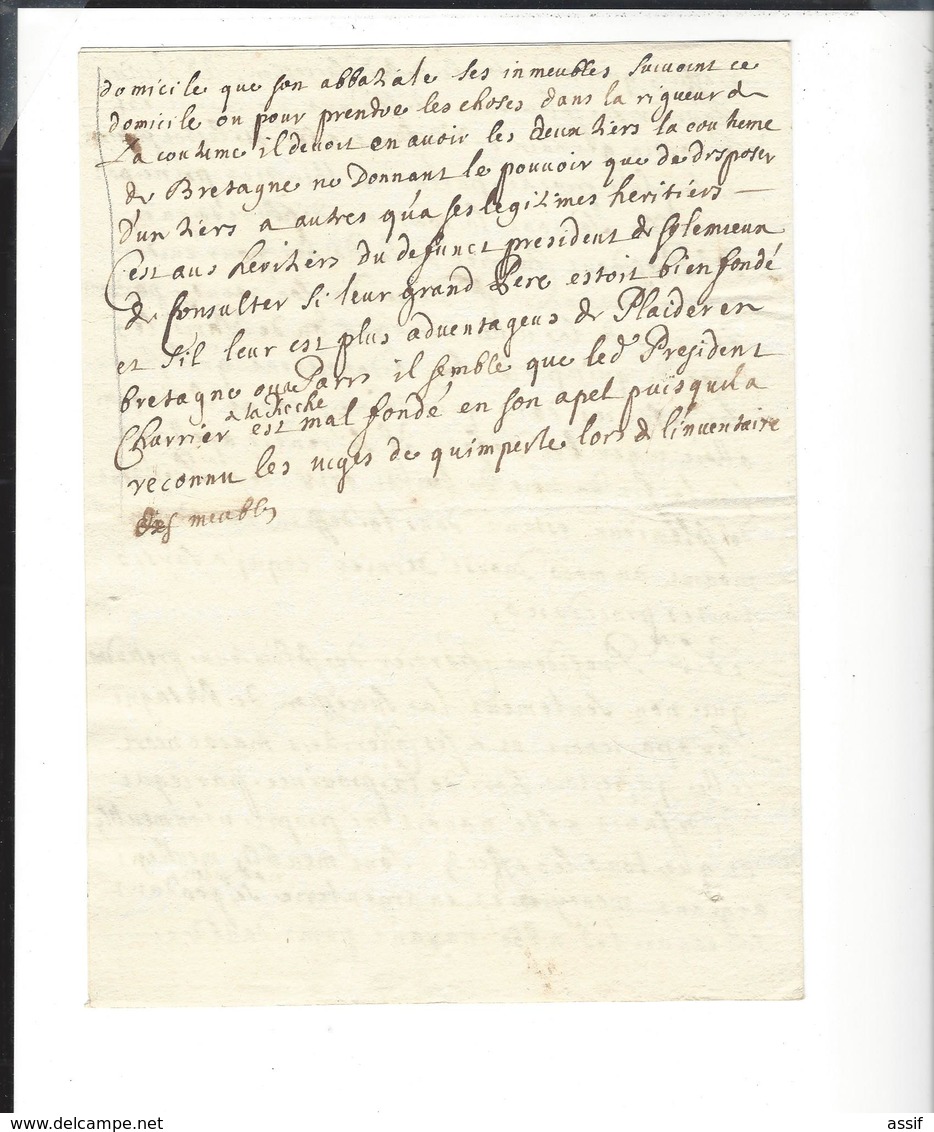 domicile que son abbatiale ses inmeubles suivant ce
domicile ou pour prendre les choses dans la rigueur de
La coutume il devoit en avoir les deux tiers la coutume
de Bretagne ne Donnant le pouvoir que de disposer
d'un tiers a autres qu'a ses legitimes heritiers —
C'est aus heritiers du defunct president de solemieux
de Consulter si leur grand Pere estoit bien fondé
et s'il leur est plus adventageus de Plaider en
bretagne ou a Paris il semble que led^t President
Charrier a la Roche est mal fondé en son apel puisqu'il a
reconnu les juges de quimperle lors de l'inventaire
des meubles
assif